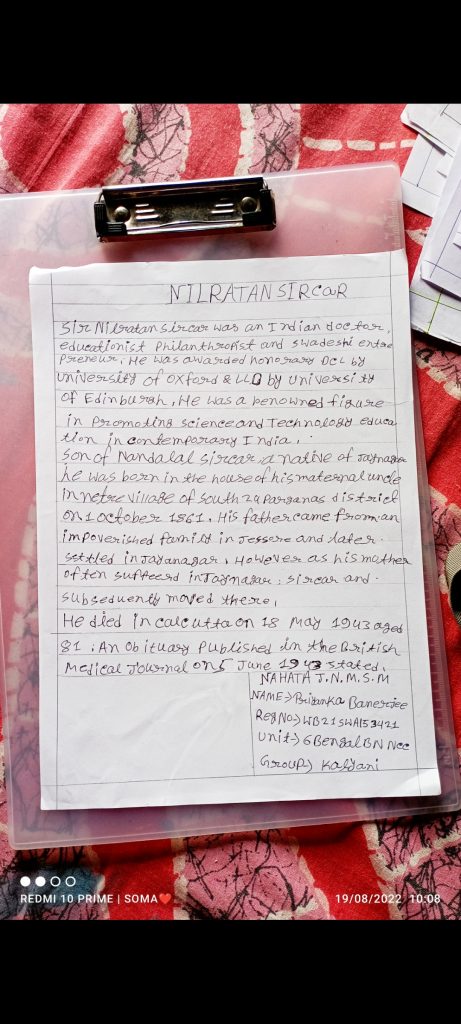 NILRATAN SIRCAR
Sir Nilratan sircar was an Indian doctor,
educationist Philanthropist and swadeshi entre
Preneur. He was awarded honorary DCL by
University of OXford & LLD by University
of Edinburgh, He was a benowned figure
in Promoting science and Technology educa
tion in contemporary India.
Son of Nandalal Sircar, a native of Jaynagar
he was born in the house of his maternal uncle
in netre Village of South 24 Parganas district
on 1 october 1861. His father came from an
impoverished family in Jessore and later
settled in Jayanagar. However as his mother
often suffeerd in Jaynagar. Sircar and
subsequently moved there,
He died in calcutta on 18 May 1943 aged
81. An Obituary Published in the British
Medical Journal on 5 June 1943 stated.
NAHATA J.N.M.S.M
NAME→Briyanka Banerjee
Reg No→WB21SWA153421
Unit→6 Bengal BN Ncc
Group→ Kalyani
REDMI 10 PRIME | SOMA❤️
19/08/2022 10:08